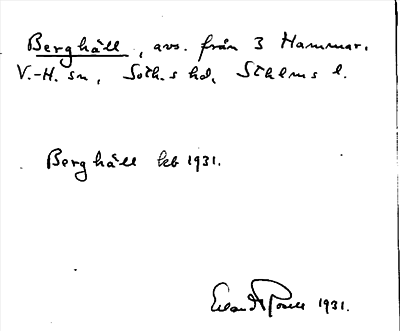 Berghäll, avs. från 3 Hammar,
V.-H. sn, Soth.s hd, Sthlms l.
Berghäll kb 1931.
1931.